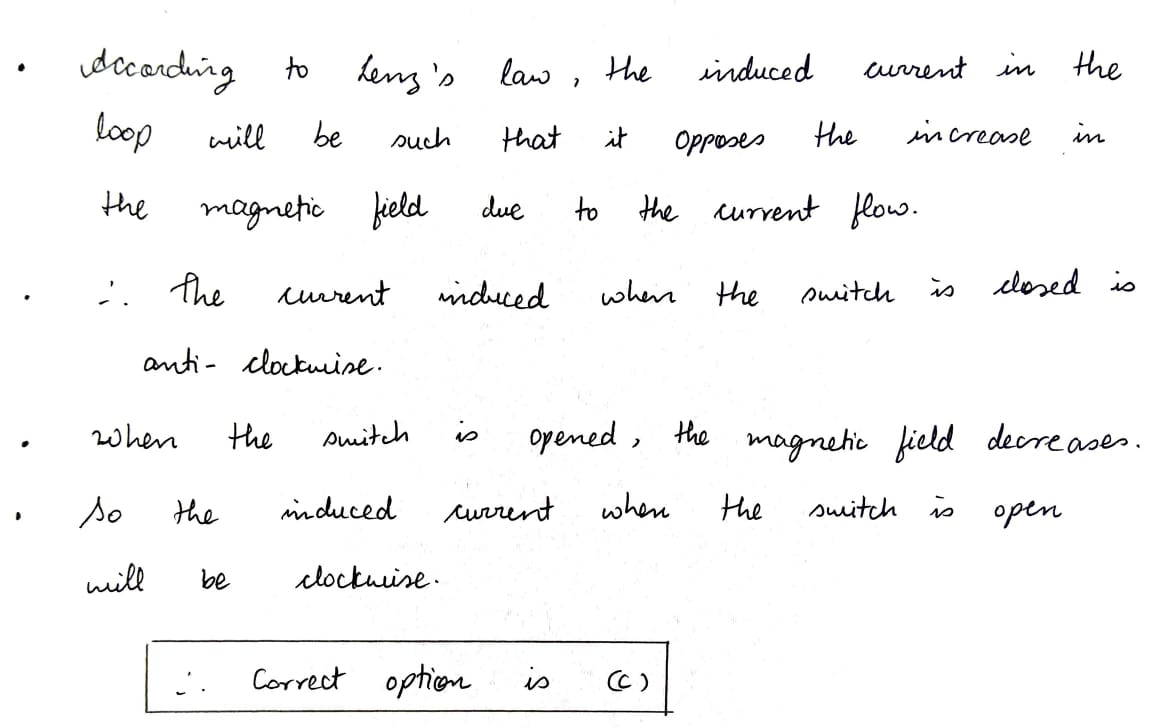 • According to Lenz's law, the induced current in the
loop will be such that it opposes the increase in
the magnetic field due to the current flow.
• ∴ The current induced when the switch is closed is
anti-clockwise.
• When the switch is opened, the magnetic field decreases.
• So the induced current when the switch is open
will be clockwise.
∴ Correct option is (C)